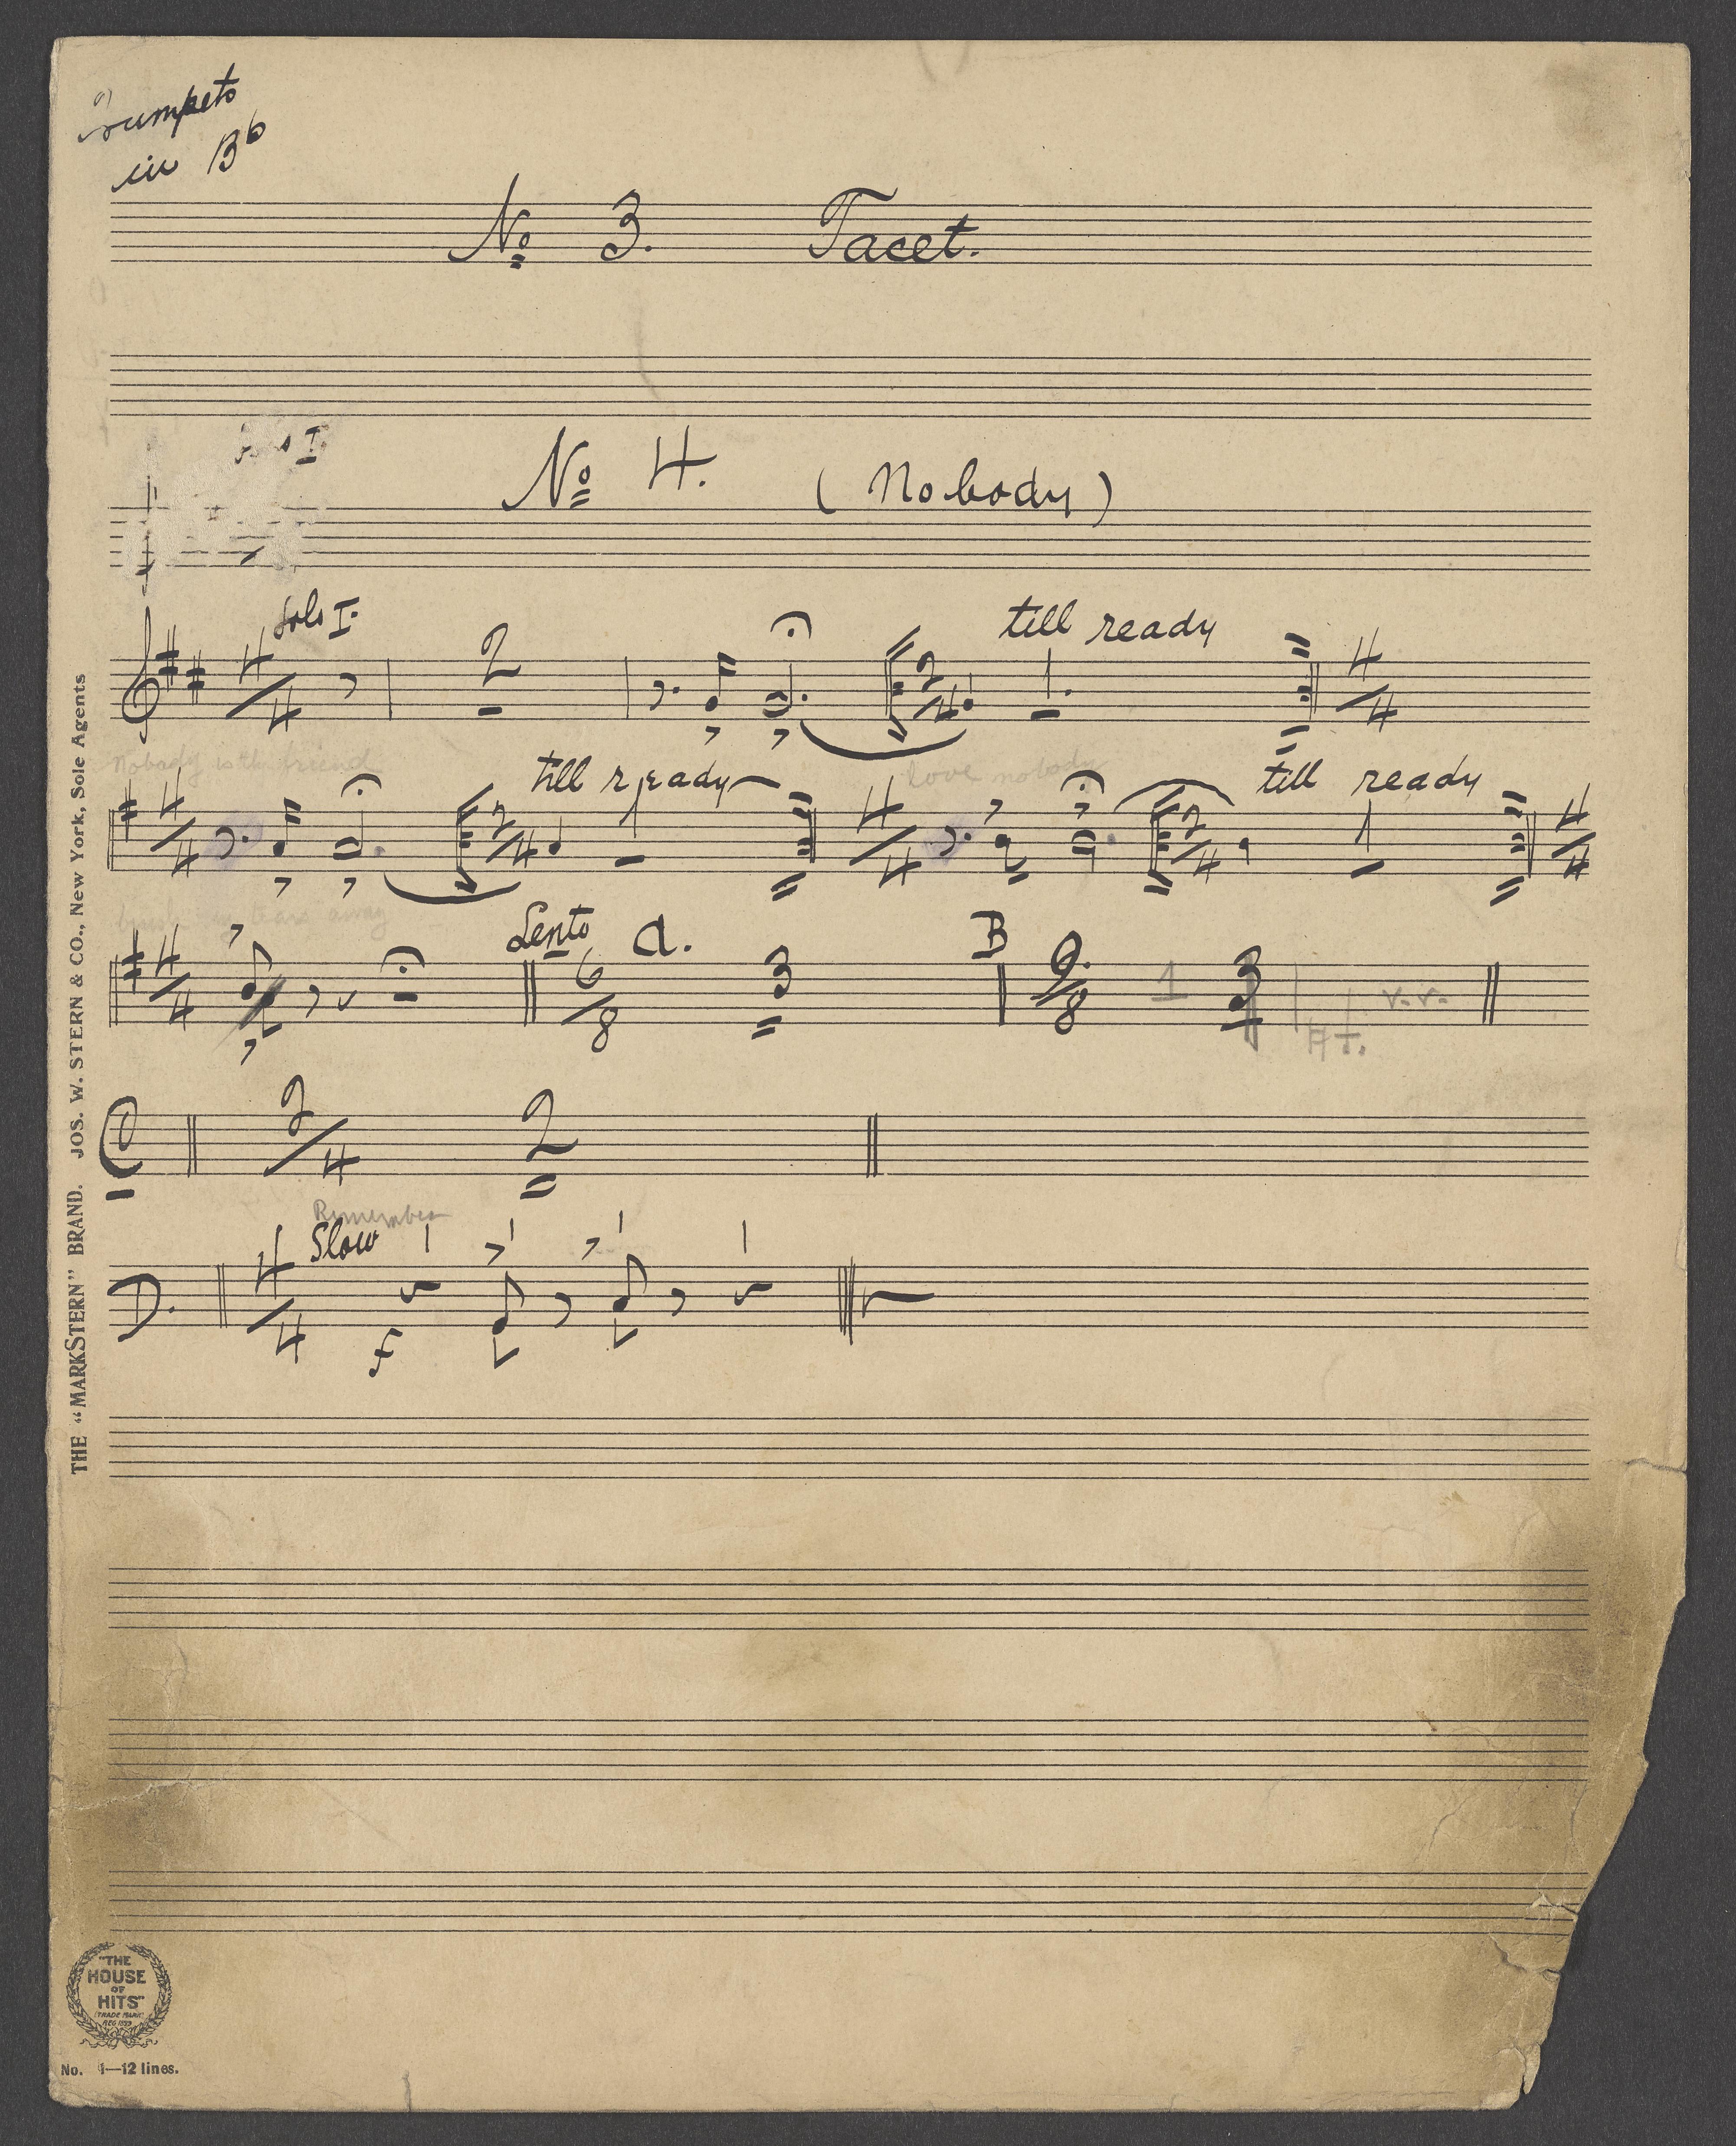 Trumpets
in B♭
No 3. Tacet.
No 4. (Nobody)
Solo I.
4/4 2 till ready
2/4 1. 4/4
Nobody is the friend
till ready love nobody till ready
4/4 2/4 1 4/4 2/4 1 4/4
tears away
Lento A. B
4/4 6/8 3 9/8 1 3
v.v.
C 2/4 2
Remember
Slow
D. 4/4
f
THE "MARKSTERN" BRAND. JOS. W. STERN & CO., New York, Sole Agents
"THE
HOUSE
OF
HITS"
(TRADE MARK)
REG 1899
No. 1—12 lines.